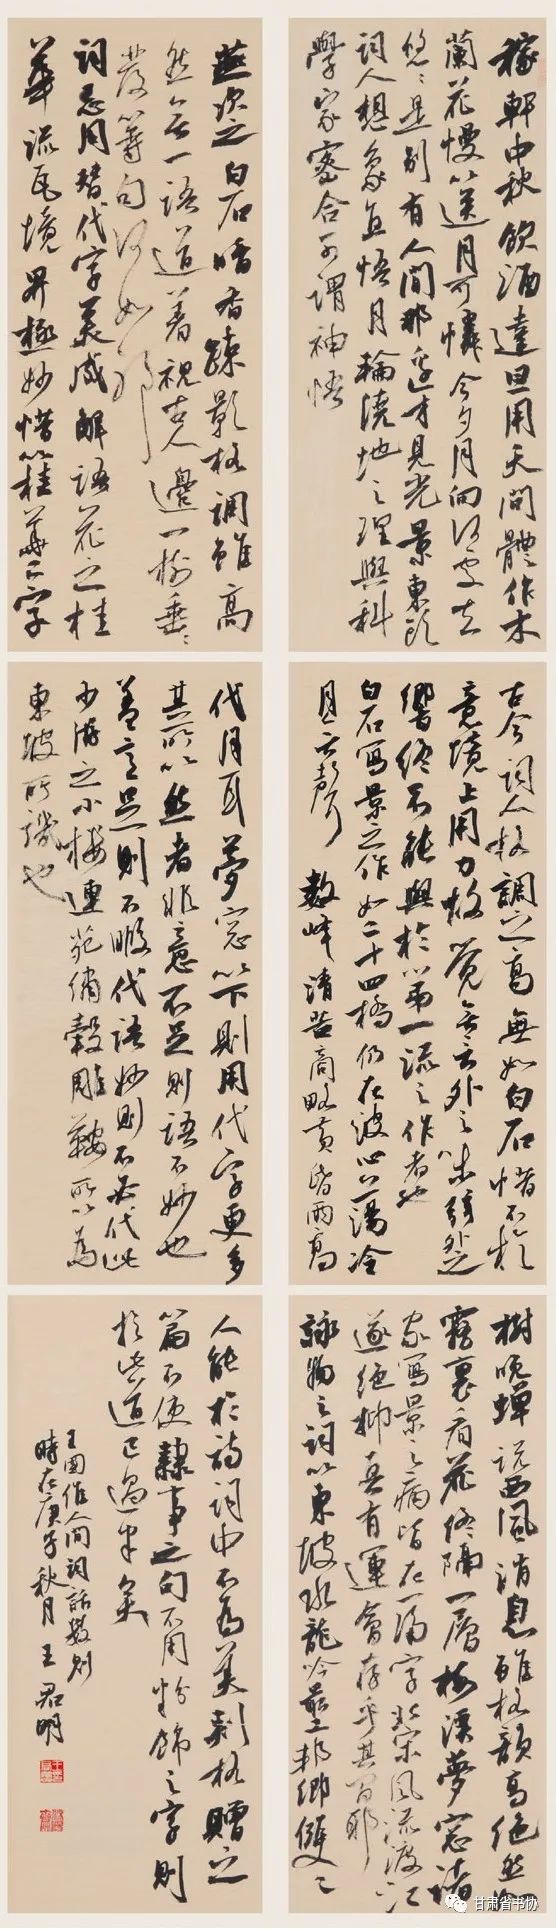 稼軒中秋飲酒達旦用天問體作木
蘭花慢以送月可憐今夕月向何處去
悠悠是別有人間那邊才見光景東頭
詞人想象直悟月輪繞地之理與科
學家密合可謂神悟
古今詞人格調之高無如白石惜不於
意境上用力故覺無言外之味絃外之
響終不能與於第一流之作者也
白石寫景之作如二十四橋仍在波心蕩冷
月無聲 數峰清苦商略黃昏雨高
樹晚蟬說西風消息雖格韻高絕然如
霧裏看花終隔一層梅溪夢窗諸
家寫景之病皆在一隔字北宋風流渡江
遂絕抑真有運會存乎其間耶
詠物之詞以東坡水龍吟最工邦卿雙〻
燕次之白石暗香疎影格調雖高
然無一語道著視古人邊一樹垂〻
發等句何如耶
詞忌用替代字美成解語花之桂
華流瓦境界極妙惜以桂華二字
代月耳夢窗以下則用代字更多
其所以然者非意不足則語不妙也
蓋意足則不暇代語妙則不必代此
少游之小樓連苑繡轂雕鞍所以為
東坡所譏也
人能於詩詞中不為美刺投贈之
篇不使隸事之句不用粉飾之字則
於此道已過半矣
王國維人間詞話數則
時在庚子秋月王君明
甘肃省书协